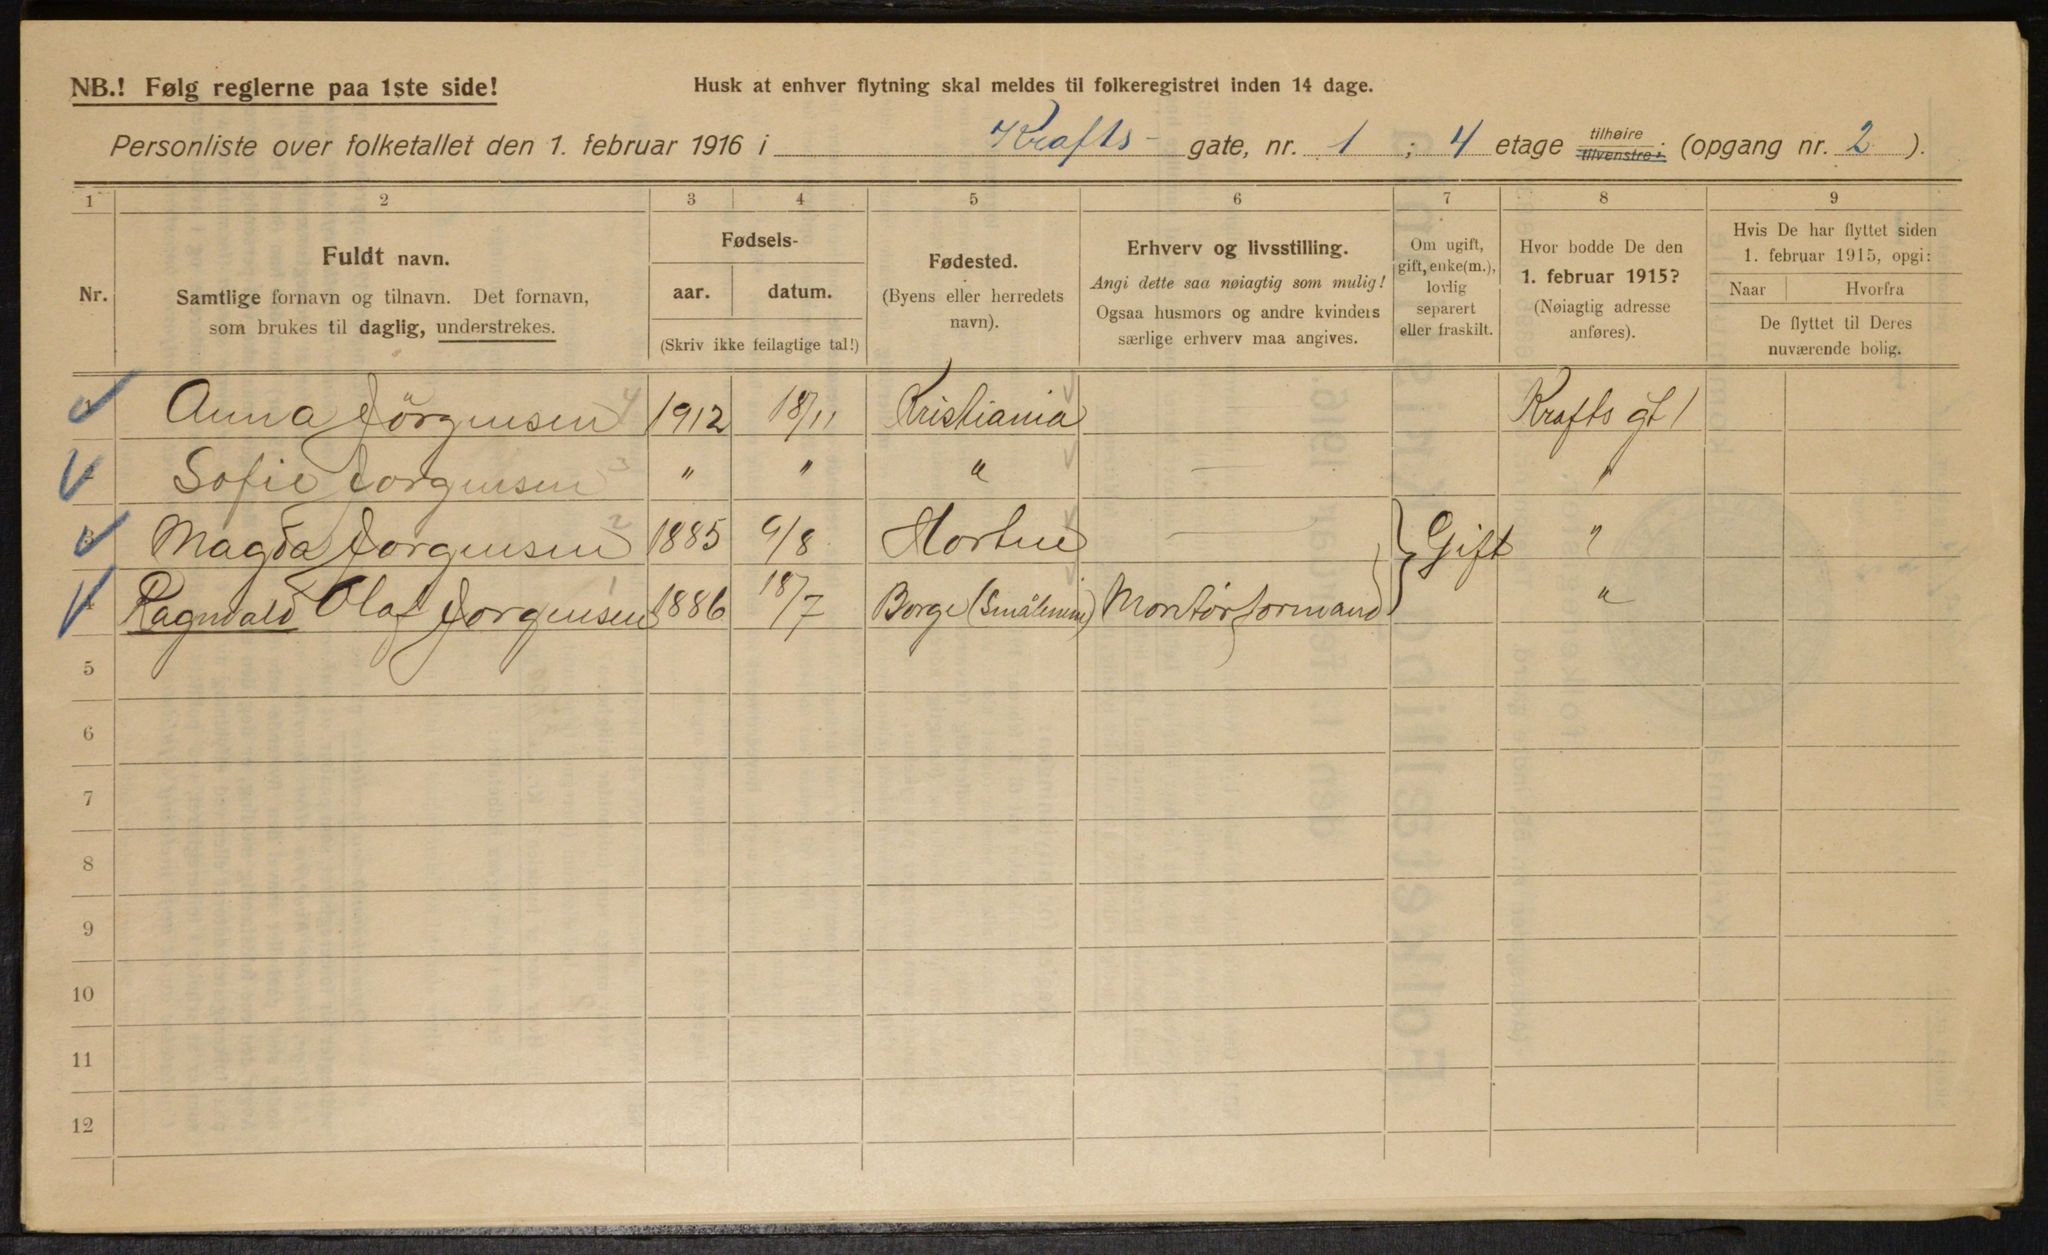 NB.! Følg reglerne paa 1ste side!
Husk at enhver flytning skal meldes til folkeregistret inden 14 dage.
Personliste over folketallet den 1. februar 1916 i Krafts- gate, nr. 1 ; 4 etage tilhøire tilvenstre; (opgang nr. 2 ).
1 2 3 4 5 6 7 8 9
Nr.
Fuldt navn.
Samtlige fornavn og tilnavn. Det fornavn,
som brukes til daglig, understrekes.
Fødsels-
aar. datum.
(Skriv ikke feilagtige tal!)
Fødested.
(Byens eller herredets
navn).
Erhverv og livsstilling.
Angi dette saa nøiagtig som mulig!
Ogsaa husmors og andre kvinders
særlige erhverv maa angives.
Om ugift,
gift, enke(m.),
lovlig
separert
eller fraskilt.
Hvor bodde De den
1. februar 1915?
(Nøiagtig adresse
anføres).
Hvis De har flyttet siden
1. februar 1915, opgi:
Naar Hvorfra
De flyttet til Deres
nuværende bolig.
Anna Jörgensen 1912 18/11 Kristiania Krafts gt 1
Sofie Jorgensen " " " "
3 Magda Jorgensen 1885 9/8 Horten Gift "
4 Ragnvald Olaf Jorgensen 1886 18/7 Borge (Smålenene) Montørformand "
5
6
7
8
9
10
11
12